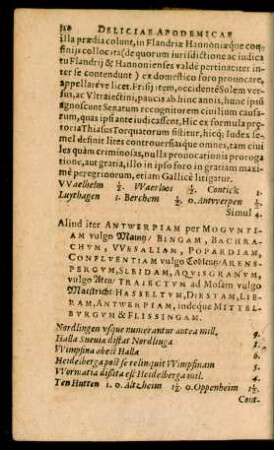 118 DELICIAE APODEMICAE
illa prædia colunt, in Flandriæ Hannoniæque con-
finiis collocata (de quorum iurisdictione ac iudica-
tu Flandrij & Hannonienses valdè pertinaciter in-
ter se contendunt) ex domestico foro prouocare,
appellareve licet. Frisij item, occidentē Solem ver-
sus, ac Vltraiectini, paucis ab hinc annis, hunc ipsū
agnoscunt Senatum recognitorem ciuilium causa-
rum, quas ipsi antè iudicassent. Hic ex formula præ-
toria Thasius Torquatorum sistitur, hicq; Iudex se-
mel definit lites controuersiasque omnes, tam ciui-
les quàm criminosas, nulla prouocationis proroga-
tione, aut gratia, illo in ipso foro in gratiam maxi-
mè peregrinorum, etiam Gallicè litigatur.
VVaelheim ½. VVaerloes ½. Contick 1.
Luythagen 1. Berchem ½. 0. Antwerpen ½.
Simul 4.
Aliud iter ANTWERPIAM per MOGVNTI
AM vulgo Mayntz/ BINGAM, BACHRA-
CHVM, VVESALIAM, POPARDIAM,
CONFLVENTIAM vulgo Coblentz/ ARENS-
PERGVM, SLEIDAM, AQVISGRANVM,
vulgo Aten/ TRAIECTVM ad Mosam vulgo
Mastricht HASSELTVM, DIESTAM, LIE-
RAM, ANTWERPIAM, indeque MITTEL-
BVRGVM & FLISSINGAM.
Nordlingen vsque numerantur antea mill. 9.
Halla Sueuia distat Nordlinga
Wimpfina abest Halla
Heidelberga post se relinquit Wimpfinam
Wormatia dissita est Heidelberga mil.
Ten Hutten 1. 0. Altzheim 1½ 0. Oppenheim 1½
Cont-